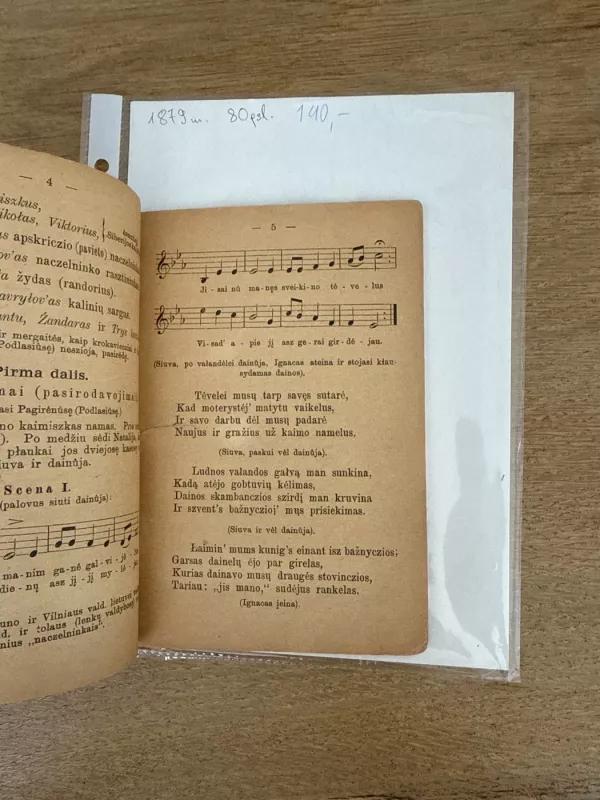 1879 m. 80 psl. 140,-
— 4 —
Viktorius,
as apskriczio (pavieto) naczelninko
ov'as naczelninko rasztininkas
žydas (randorius).
avryłov'as kalinių sargas.
Žandaras ir Trys
ir mergaitės, kaip krokavieniai
Podlasiūsę) nesziοja, pasirėdę.
Pirma dalis.
mai (pasirodavojimai
asi Pagirėnūsę (Podlasiūsę)
no kaimiszkas namas.
). Po medžiu sėdi Natalija,
plaukai jos dviejosę
iuva ir dainůja.
Scena I.
(palovus siuti dainůja):
ma - nim ga-nė gal - vi - jė -
die - nų asz jį jį my - lė -
uno ir Vilniaus vald. lietuvei
d. ir tolaus (lenkų valdybos)
nius „naczelninkais“.
— 5 —
Ji - sai nů ma-nęs svei-ki-no tė - ve - lus
Vi-sad' a - pie jį asz ge-rai gir-dė-jau.
(Siuva, po valandėlei dainůja, Ignacas ateina ir stojasi klau-
sydamas dainos).
Tėvelei musų tarp savęs sutarė,
Kad moterystėj' matytu vaikelus,
Ir savo darbu dėl musų padarė
Naujus ir gražius už kaimo namelus.
(Siuva, paskui vėl dainůja).
Ludnos valandos galvą man sunkina,
Kadą atėjo gobtuvių kėlimas,
Dainos skambanczios szirdį man kruvina
Ir szvent's bažnyczioj' mųs prisiekimas.
(Siuva ir vėl dainůja).
Łaimin' mums kunig's einant isz bažnyczios;
Garsas dainelų ėjo par girelas,
Kurias dainavo musų draugės stovinczios,
Tariau: „jis mano,“ sudėjus rankelas.
(Ignacas įeina).